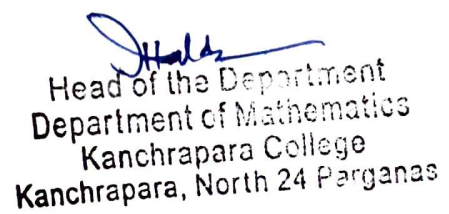 Head of the Department
Department of Mathematics
Kanchrapara College
Kanchrapara, North 24 Parganas